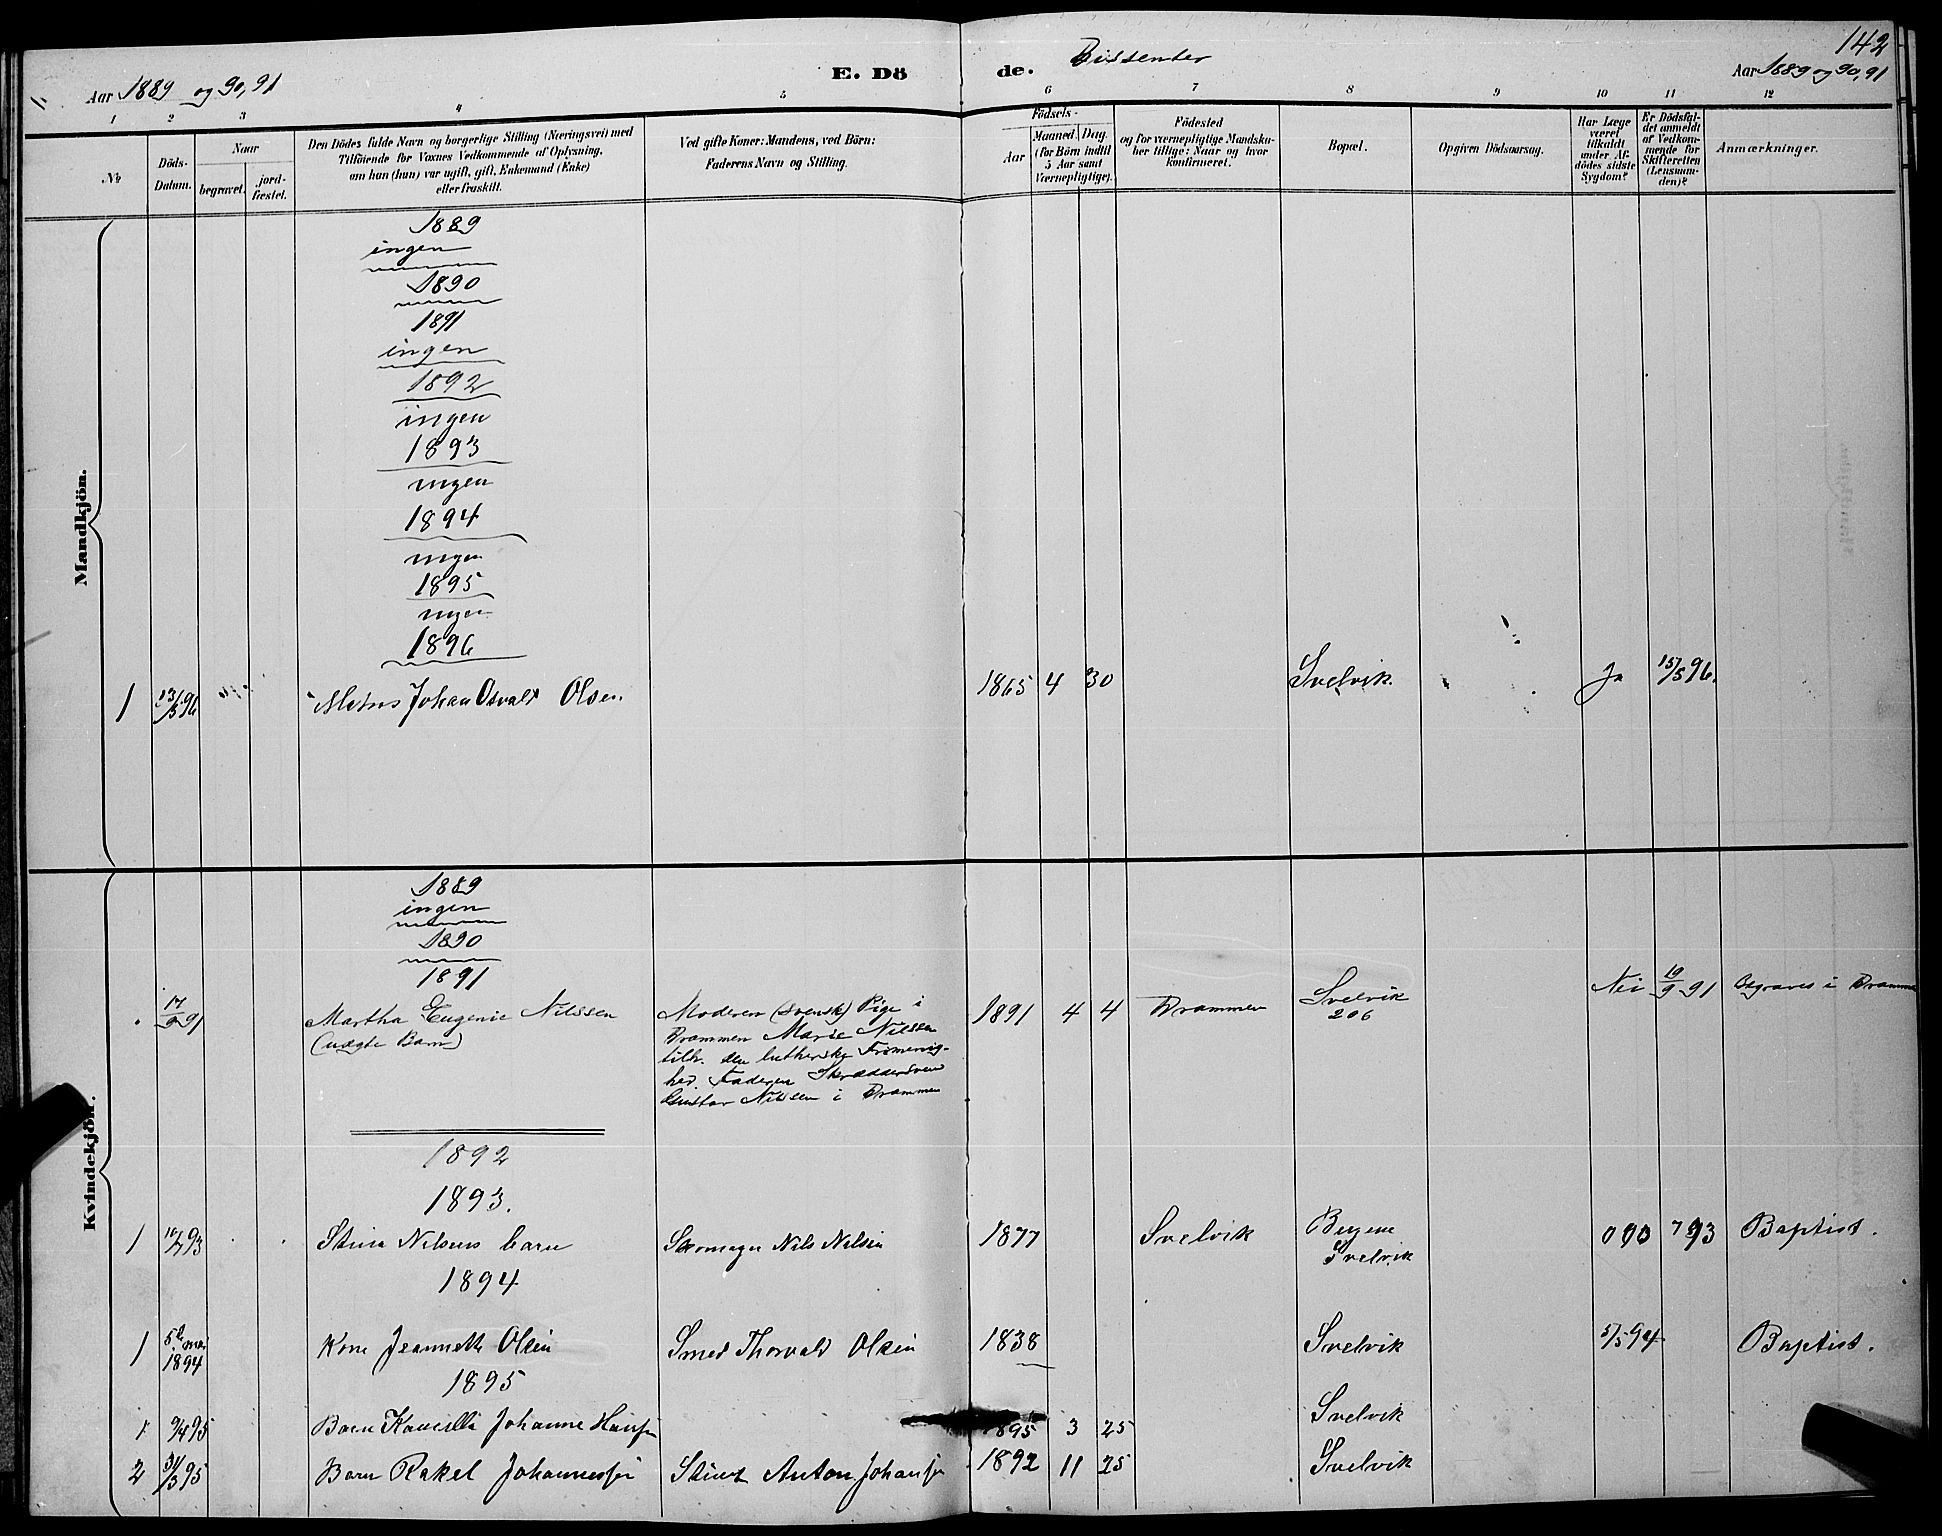 142
Aar 1889 og 90, 91
E. Dö
de.
Dissenter
Aar 1889 og 90, 91
1 2 3 4 5 6 7 8 9 10 11 12
No
Döds-
Datum.
Naar
begravet.
jord-
fæstet.
Den Dödes fulde Navn og borgerlige Stilling (Næringsvei) med
Tilföiende for Voxnes Vedkommende af Oplysning,
om han (hun) var ugift, gift, Enkemand (Enke)
eller fraskilt.
Ved gifte Koner: Mandens, ved Börn:
Faderens Navn og Stilling.
Födsels-
Aar
Maaned.
Dag.
(for Börn indtil
5 Aar samt
Værnepligtige).
Födested
og for værnepligtige Mandska-
ber tillige: Naar og hvor
konfirmeret.
Bopæl.
Opgiven Dödsaarsag.
Har Læge
været
tilkaldt
under Af-
dödes sidste
Sygdom?
Er Dödsfal-
det anmeldt
af Vedkom-
mende for
Skifteretten
(Lensman-
den)?
Anmærkninger.
Mandkjön.
1889
ingen
1890
1891
ingen
1892
ingen
1893
ingen
1894
ingen
1895
ingen
1896
1 13/5 96 Johan Osvald Olsen 1865 4 30 Svelvik Ja 15/5 96.
Kvindekjön.
1889
ingen
1890
1891
17/9 91 Martha Eugenie Nilssen
(uægte Barn)
Moderen (svensk) Pige i
Drammen Marie Nilssen
tilh. den lutherske
Faderen Skræddersvend
Gustav Nilssen i Drammen
1891 4 4 Drammen Svelvik
206
Nei 19/9 91 Begraves i Dramme
1892
1893.
1 10/7 93 Stina Nilsens barn Skomager Nils Nilsen 1877 Svelvik
Svelvik
7 93 Baptist.
1894
1 5te mai
1894 Kone Jeanneth Olsen Smed Thorvald Olsen 1838 Svelvik 5/5 94 Baptist.
1895
1 9/4 95 Barn Johanne Hansen 1895 3 25 Svelvik
2 31/3 95 Barn Rakel Johannessen Anton Johansen 1892 11 25 Svelvik